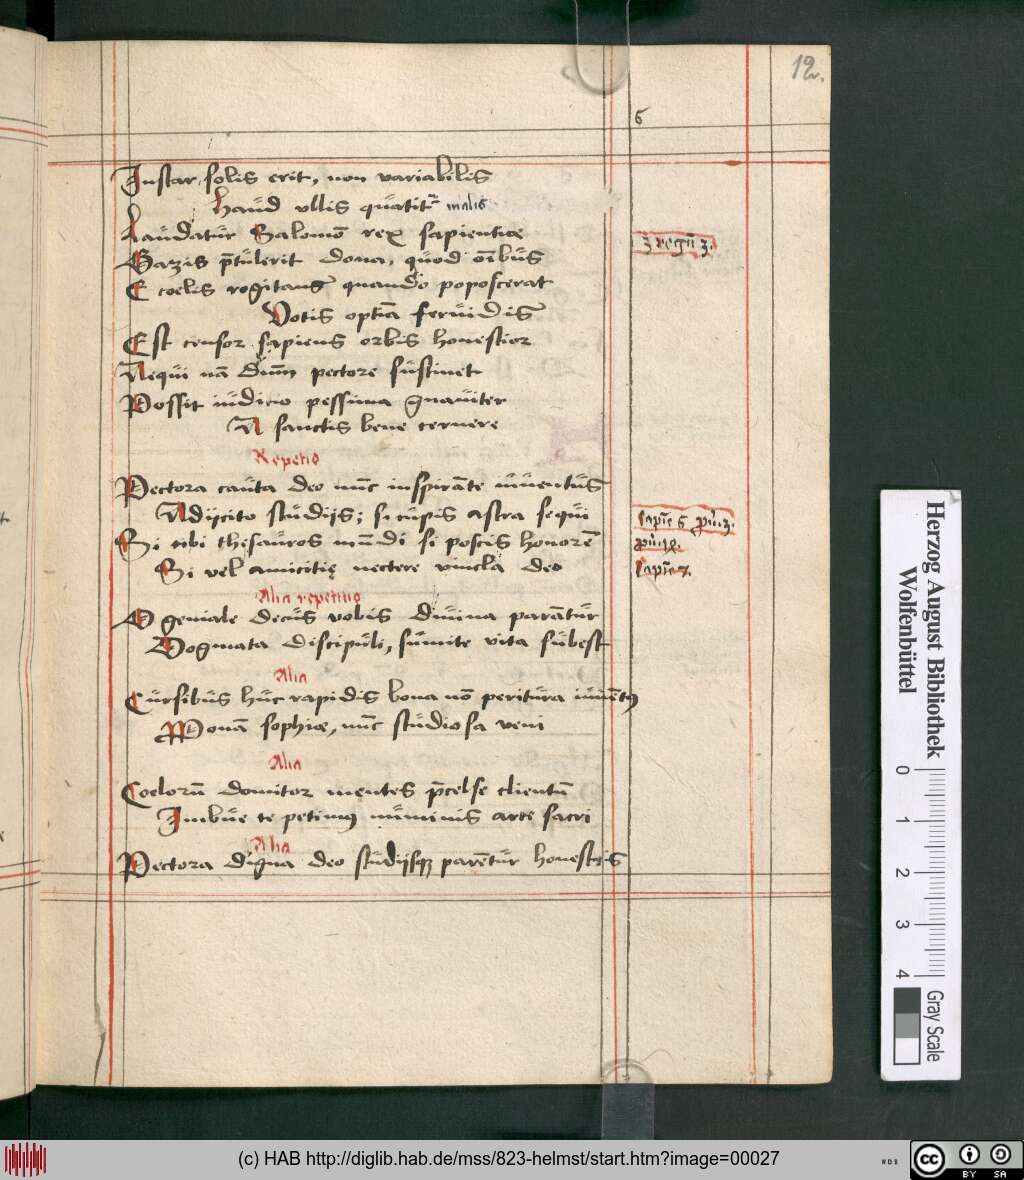 12.
6
Instar solis erit, non variabilis
haud ullis quatit᷑ malis
Laudatur Salomō rex sapientiæ
Gazis p̄tulerit dona, quod oībus
E coelis rogitans quando poposcerat
Votis optīa fervidis
Est censor sapiens orbis honestior
Nequi nā dum pectore sustinet
Possit iudicio pessima gnaviter
A sanctis bene cernere
Repetio
Pectora cauta deo nūc inspirāte iuventus
Adijcito studijs; si cupis astra sequi
3 regū 3.
Sapiē 6 pu. 3.
Si tibi thesauros mūdi si poscis honorē
Si vel amicitię nectere vincla deo
Sapiē 7.
Alia repetitio
O geniale decus vobis divina parātur
Dogmata discipuli, sumite vita subest
Alia
Cursibus huc rapidis bona nō peritura iuuētꝰ
Donā sophiæ, nūc studiosa veni
Alia
Coelorū domitor mentes p̄celse clientū
Imbue te petimꝰ numinis arte sacri
Alia
Pectora digna deo studijsqꝫ parētur honestis
Herzog August Bibliothek
Wolfenbüttel
0 1 2 3 4
Gray Scale
(c) HAB http://diglib.hab.de/mss/823-helmst/start.htm?image=00027
WDB
cc
BY SA